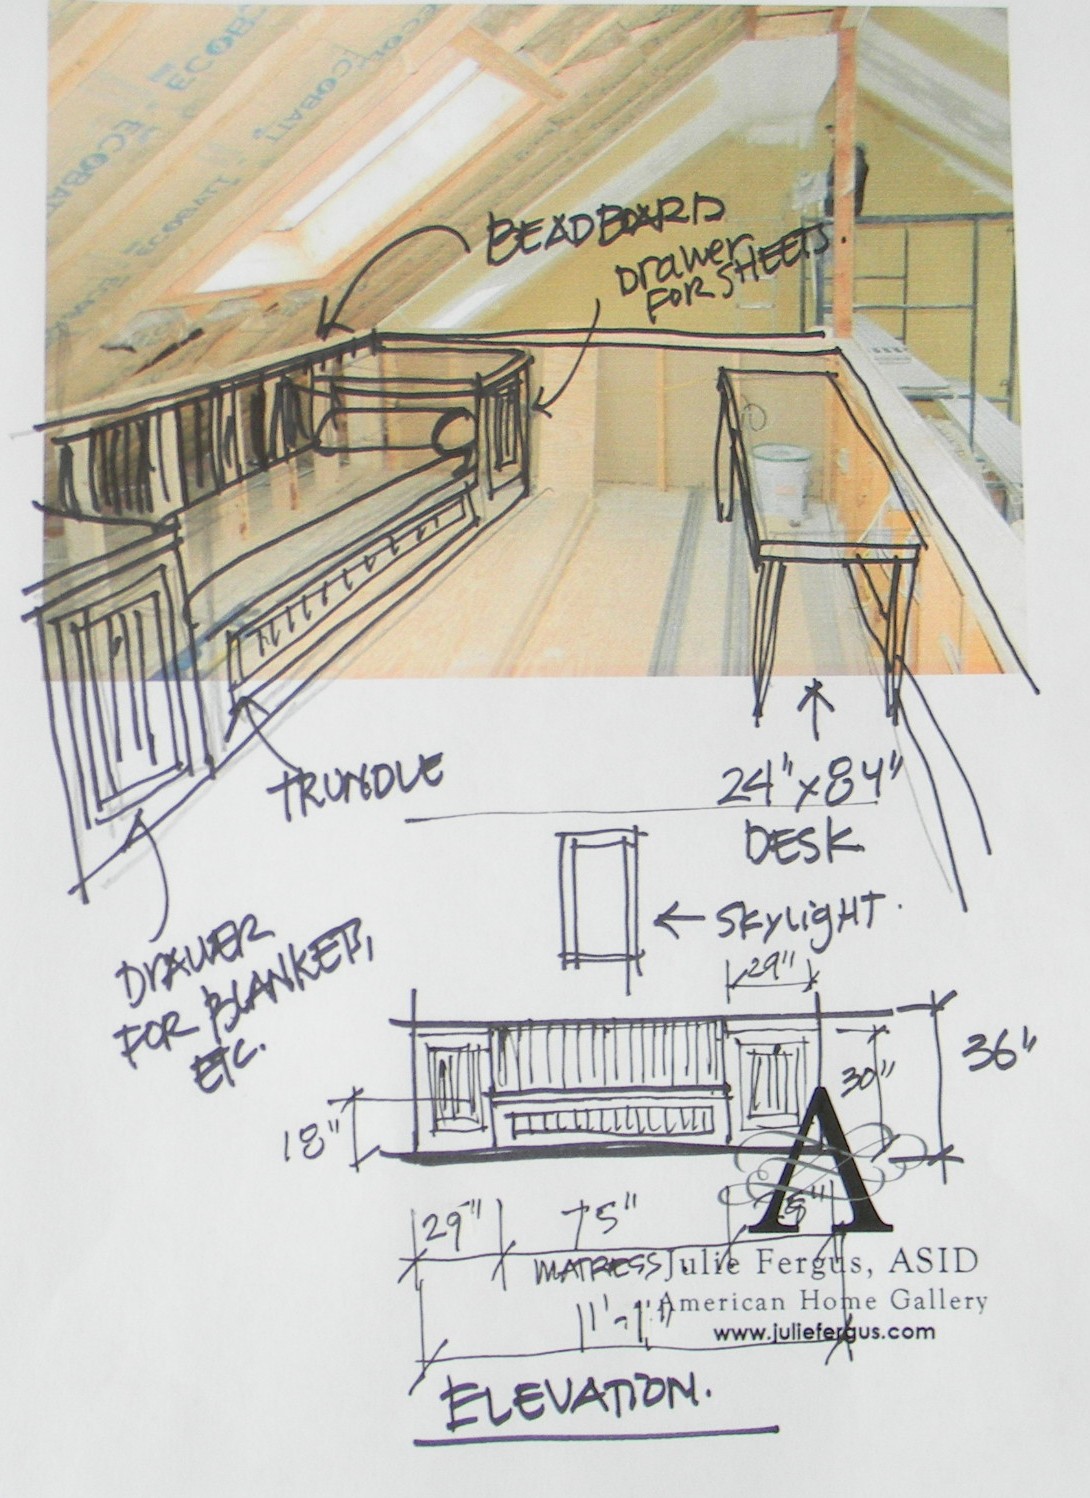 ECOBATT
ECOBATT
ECOBATT
BEADBOARD
Drawer
FOR SHEETS.
TRUNDLE
24" x 84"
DESK
DRAWER
FOR BLANKETS,
ETC.
SKYLIGHT.
29"
36"
30"
18"
29" 75"
MATRESS
11'-1"
Julie Fergus, ASID
American Home Gallery
www.juliefergus.com
ELEVATION.